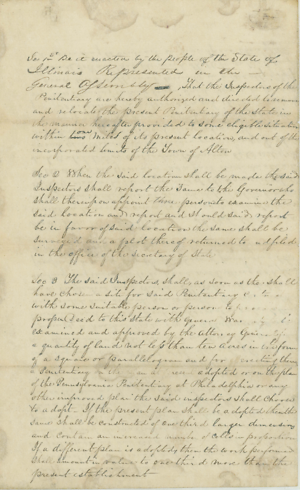 Sec 1st Be it enacted by the people of the State of
Illinois Represented in the
General Assembly, That the Inspectors of the
Penitentiary are hereby authorized and directed to examine
and relocate the present Penitentiary of the State in
the manner hereafter provided to some eligible situation
within two miles of its present location and out of the
incorporated limits of the Town of Alton
Sec 2 When the said location shall be made the said
Inspectors shall report the same to the Governor who
shall thereupon appoint three persons to examine the
said location and report and should said report
be in favor of said location the same shall be
surveyed and a plat thereof returned to and filed
in the office of the Secretary of State
Sec 3 The said Inspectors shall, as soon as they shall
have chosen a site for said Penitentiary
with some suitable person or persons to
proper deed to this State with General Warranty
examined and approved by the Attorney General
a quantity of land not less than ten acres in the form
of a square or parallelogram and for erecting them
a penitentiary adopted on the plan
of the Pennsylvania Penitentiary at Philadelphia or any
other improved plan the said inspectors shall choose
to adopt. If the present plan shall be adopted then the
same shall be constructed of one third larger dimension
and contain an increased number of Cells in proportion
If a different plan is adopted then the work performed
shall amount in value to one third more than the
present establishment